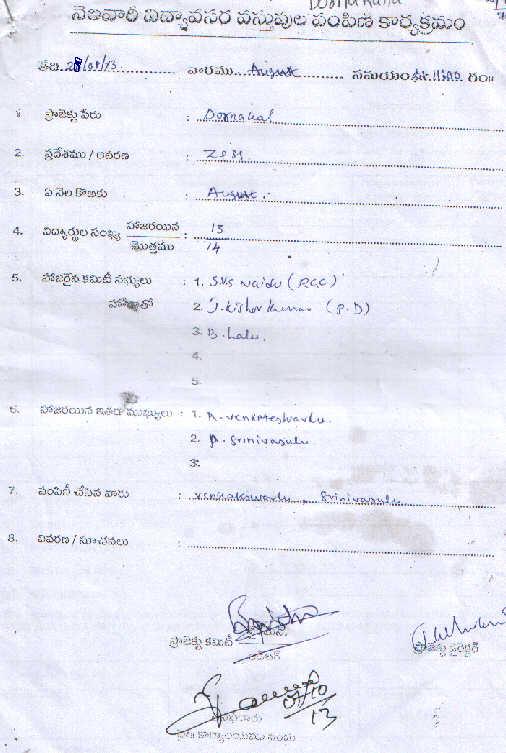 నెలవారీ నిత్యావసర వస్తువుల పంపిణీ కార్యక్రమం
తేది వారము August సమయం గం॥
1 ప్రాజెక్టు పేరు : Dornakal
2 ప్రదేశము / వివరణ :
3. ఏ నెల కొఱకు : August.
4. విద్యార్థుల సంఖ్య హాజరయిన : 13
మొత్తము 14
5. హాజరైన కమిటీ సభ్యులు : 1. S.V.S Naidu (P.C.C)
2. J. Kishor Kumar (P.D)
3. B. Lalu.
4.
5.
6. హాజరయిన ఇతర ముఖ్యులు : 1. A. Venkateshwarlu.
2. P. Srinivasulu
3.
7. పంపిణీ చేసిన వారు : Venkateswarlu, Srinivasulu
8. వివరణ / సూచనలు :
ప్రాజెక్టు కమిటీ
ప్రాజెక్టు డైరెక్టర్
10
13